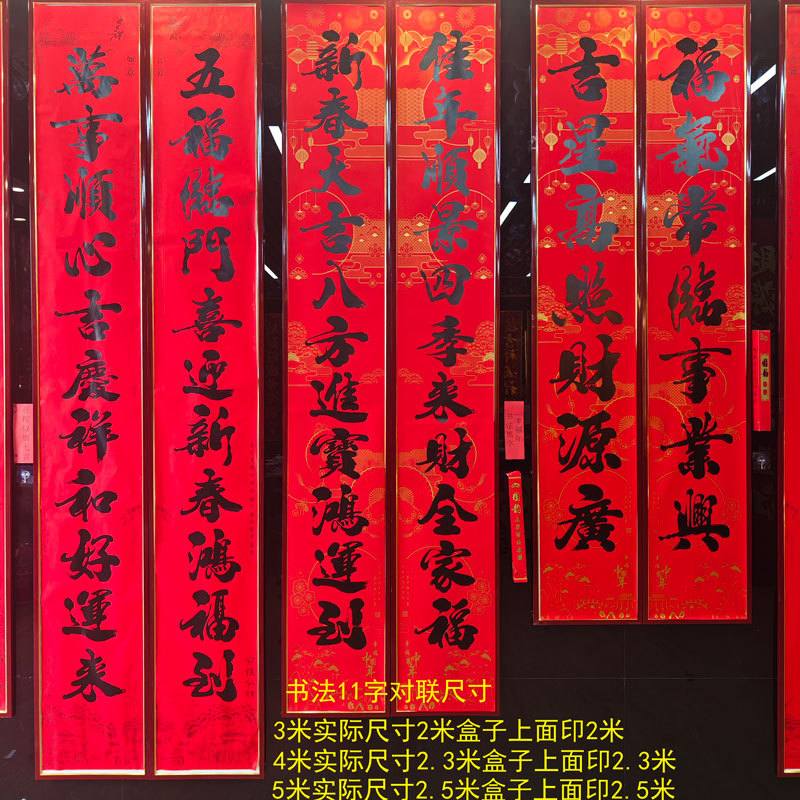 福氣常臨事業興
吉星高照財源廣
佳年順景四季来財全家福
新春大吉八方進寶鴻運到
五福臨門喜迎新春鴻福到
萬事順心吉慶祥和好運来
书法11字对联尺寸
3米实际尺寸2米盒子上面印2米
4米实际尺寸2.3米盒子上面印2.3米
5米实际尺寸2.5米盒子上面印2.5米